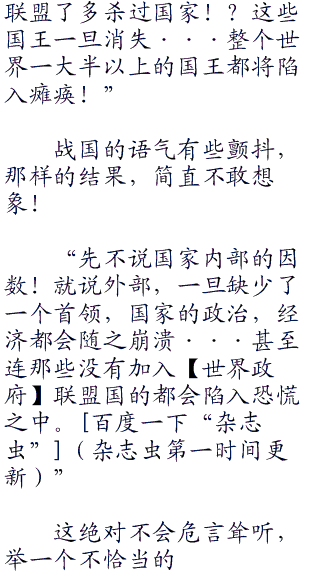 联盟了多杀过国家！？这些
国王一旦消失···整个世
界一大半以上的国王都将陷
入瘫痪！”
战国的语气有些颤抖，
那样的结果，简直不敢想
象！
“先不说国家内部的因
数！就说外部，一旦缺少了
一个首领，国家的政治，经
济都会随之崩溃···甚至
连那些没有加入【世界政
府】联盟国的都会陷入恐慌
之中。[百度一下“杂志
虫”]（杂志虫第一时间更
新）”
这绝对不会危言耸听，
举一个不恰当的